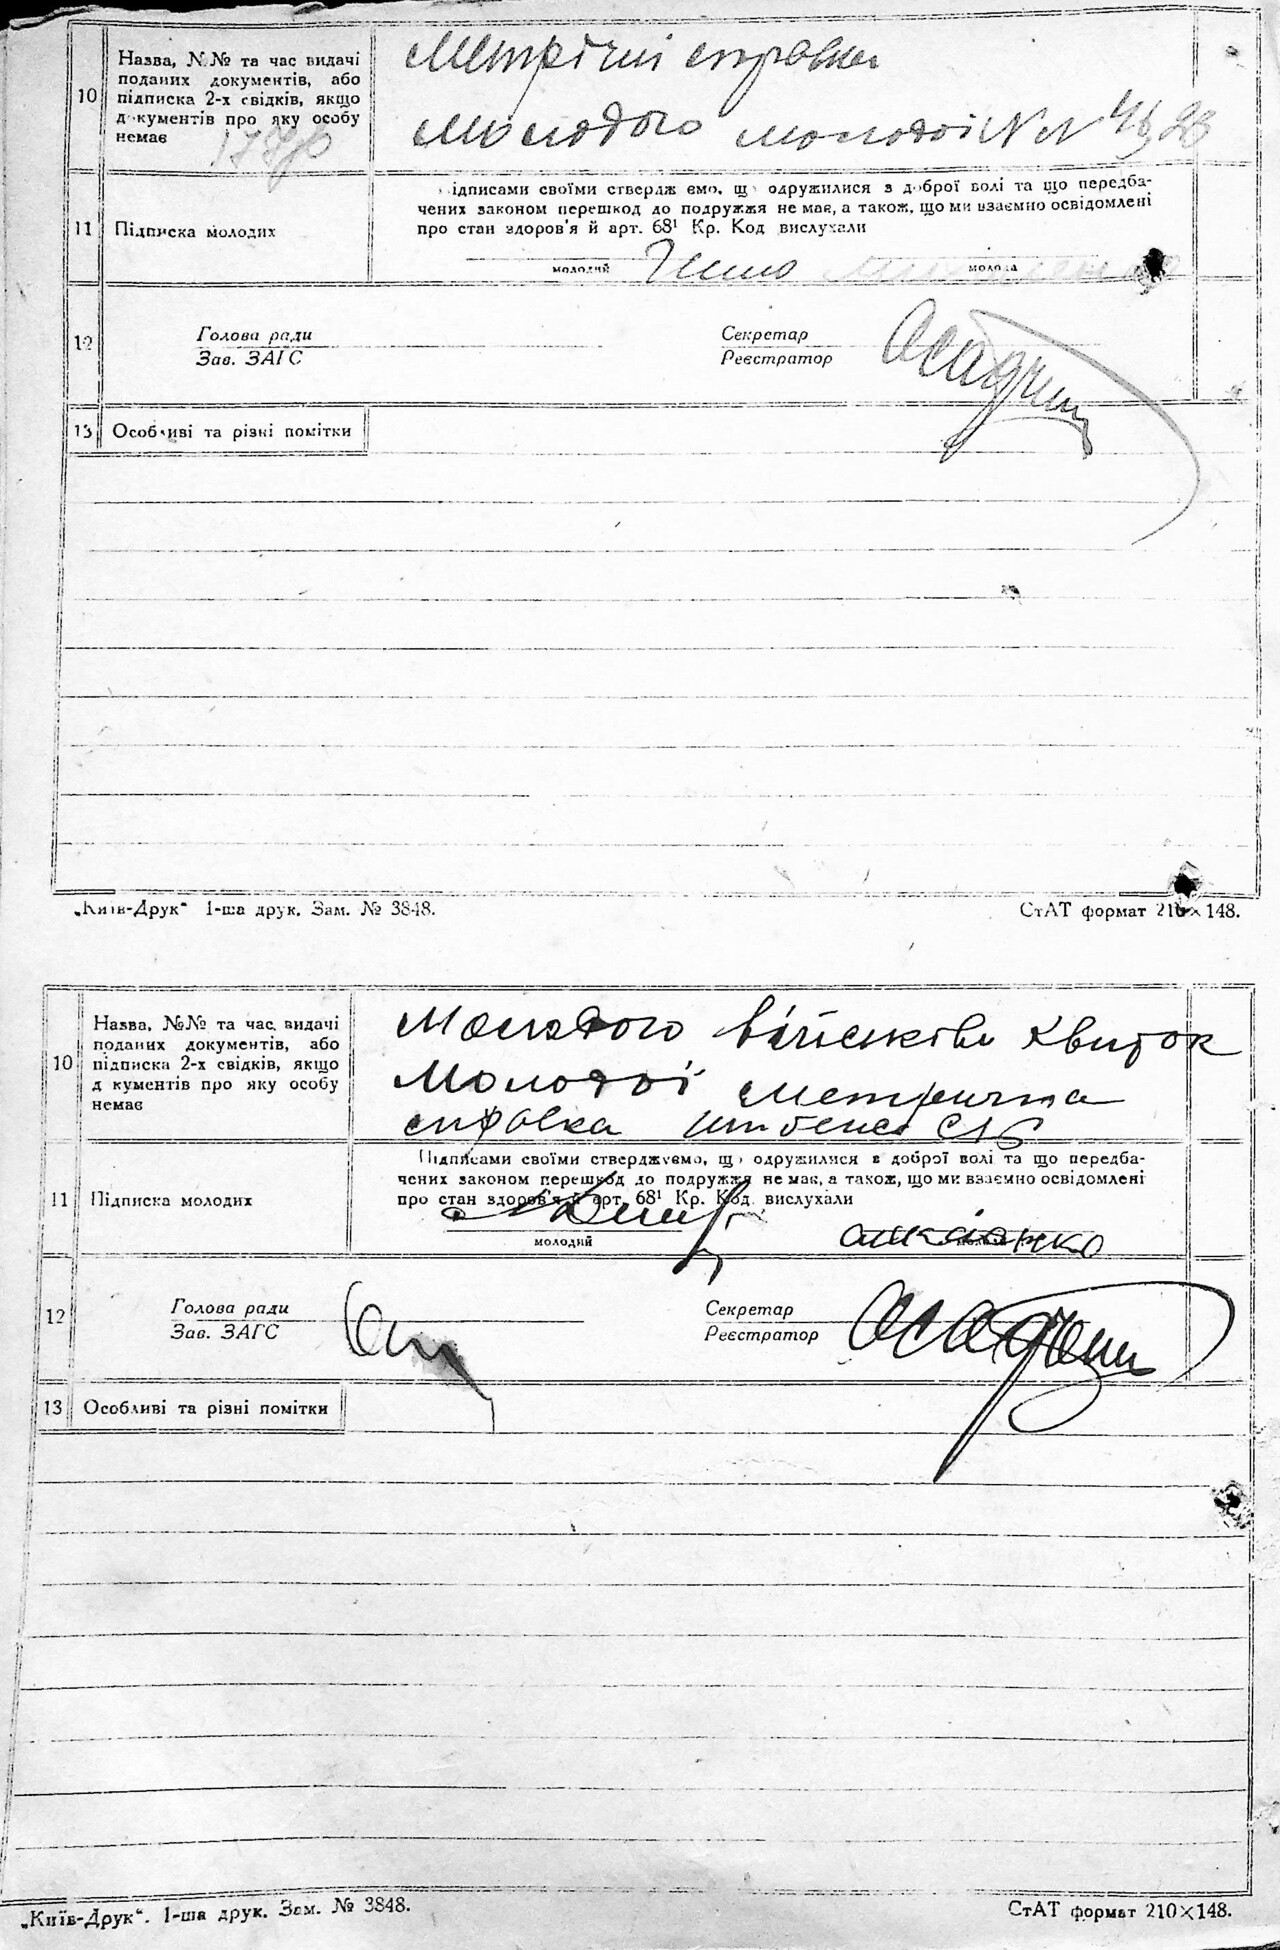 10
Назва, N.№ та час видачі
поданих документів, або
підписка 2-х свідків, якщо
д кументів про яку особу
немає
Метричні справки
Молодого молодої N N 46, 28
11
Підписка молодих
ідписами своїми ствердж ємо, щ одружилися з доброї волі та що передба-
чених законом перешкод до подружжя не має, а також, що ми взаємно освідомлені
про стан здоров'я й арт. 68¹ Кр. Код вислухали
молодий
молода
12
Голова ради
Зав. ЗАГС
Секретар
Реєстратор
13
Особливі та різні помітки
„Київ-Друк“ 1-ша друк. Зам. № 3848.
СтАТ формат 210×148.
10
Назва, №№ та час видачі
поданих документів, або
підписка 2-х свідків, якщо
д кументів про яку особу
немає
Молодого військови квиток
Молодої метрична
справка
11
Підписка молодих
Підписами своїми стверджуємо, щ одружилися в доброї волі та що передба-
чених законом перешкод до подружжя не має, а також, що ми взаємно освідомлені
про стан здоров'я й арт. 68¹ Кр. Код вислухали
молодий
12
Голова ради
Зав. ЗАГС
Секретар
Реєстратор
13
Особливі та різні помітки
„Київ-Друк“. 1-ша друк. Зам. № 3848.
СтАТ формат 210×148.